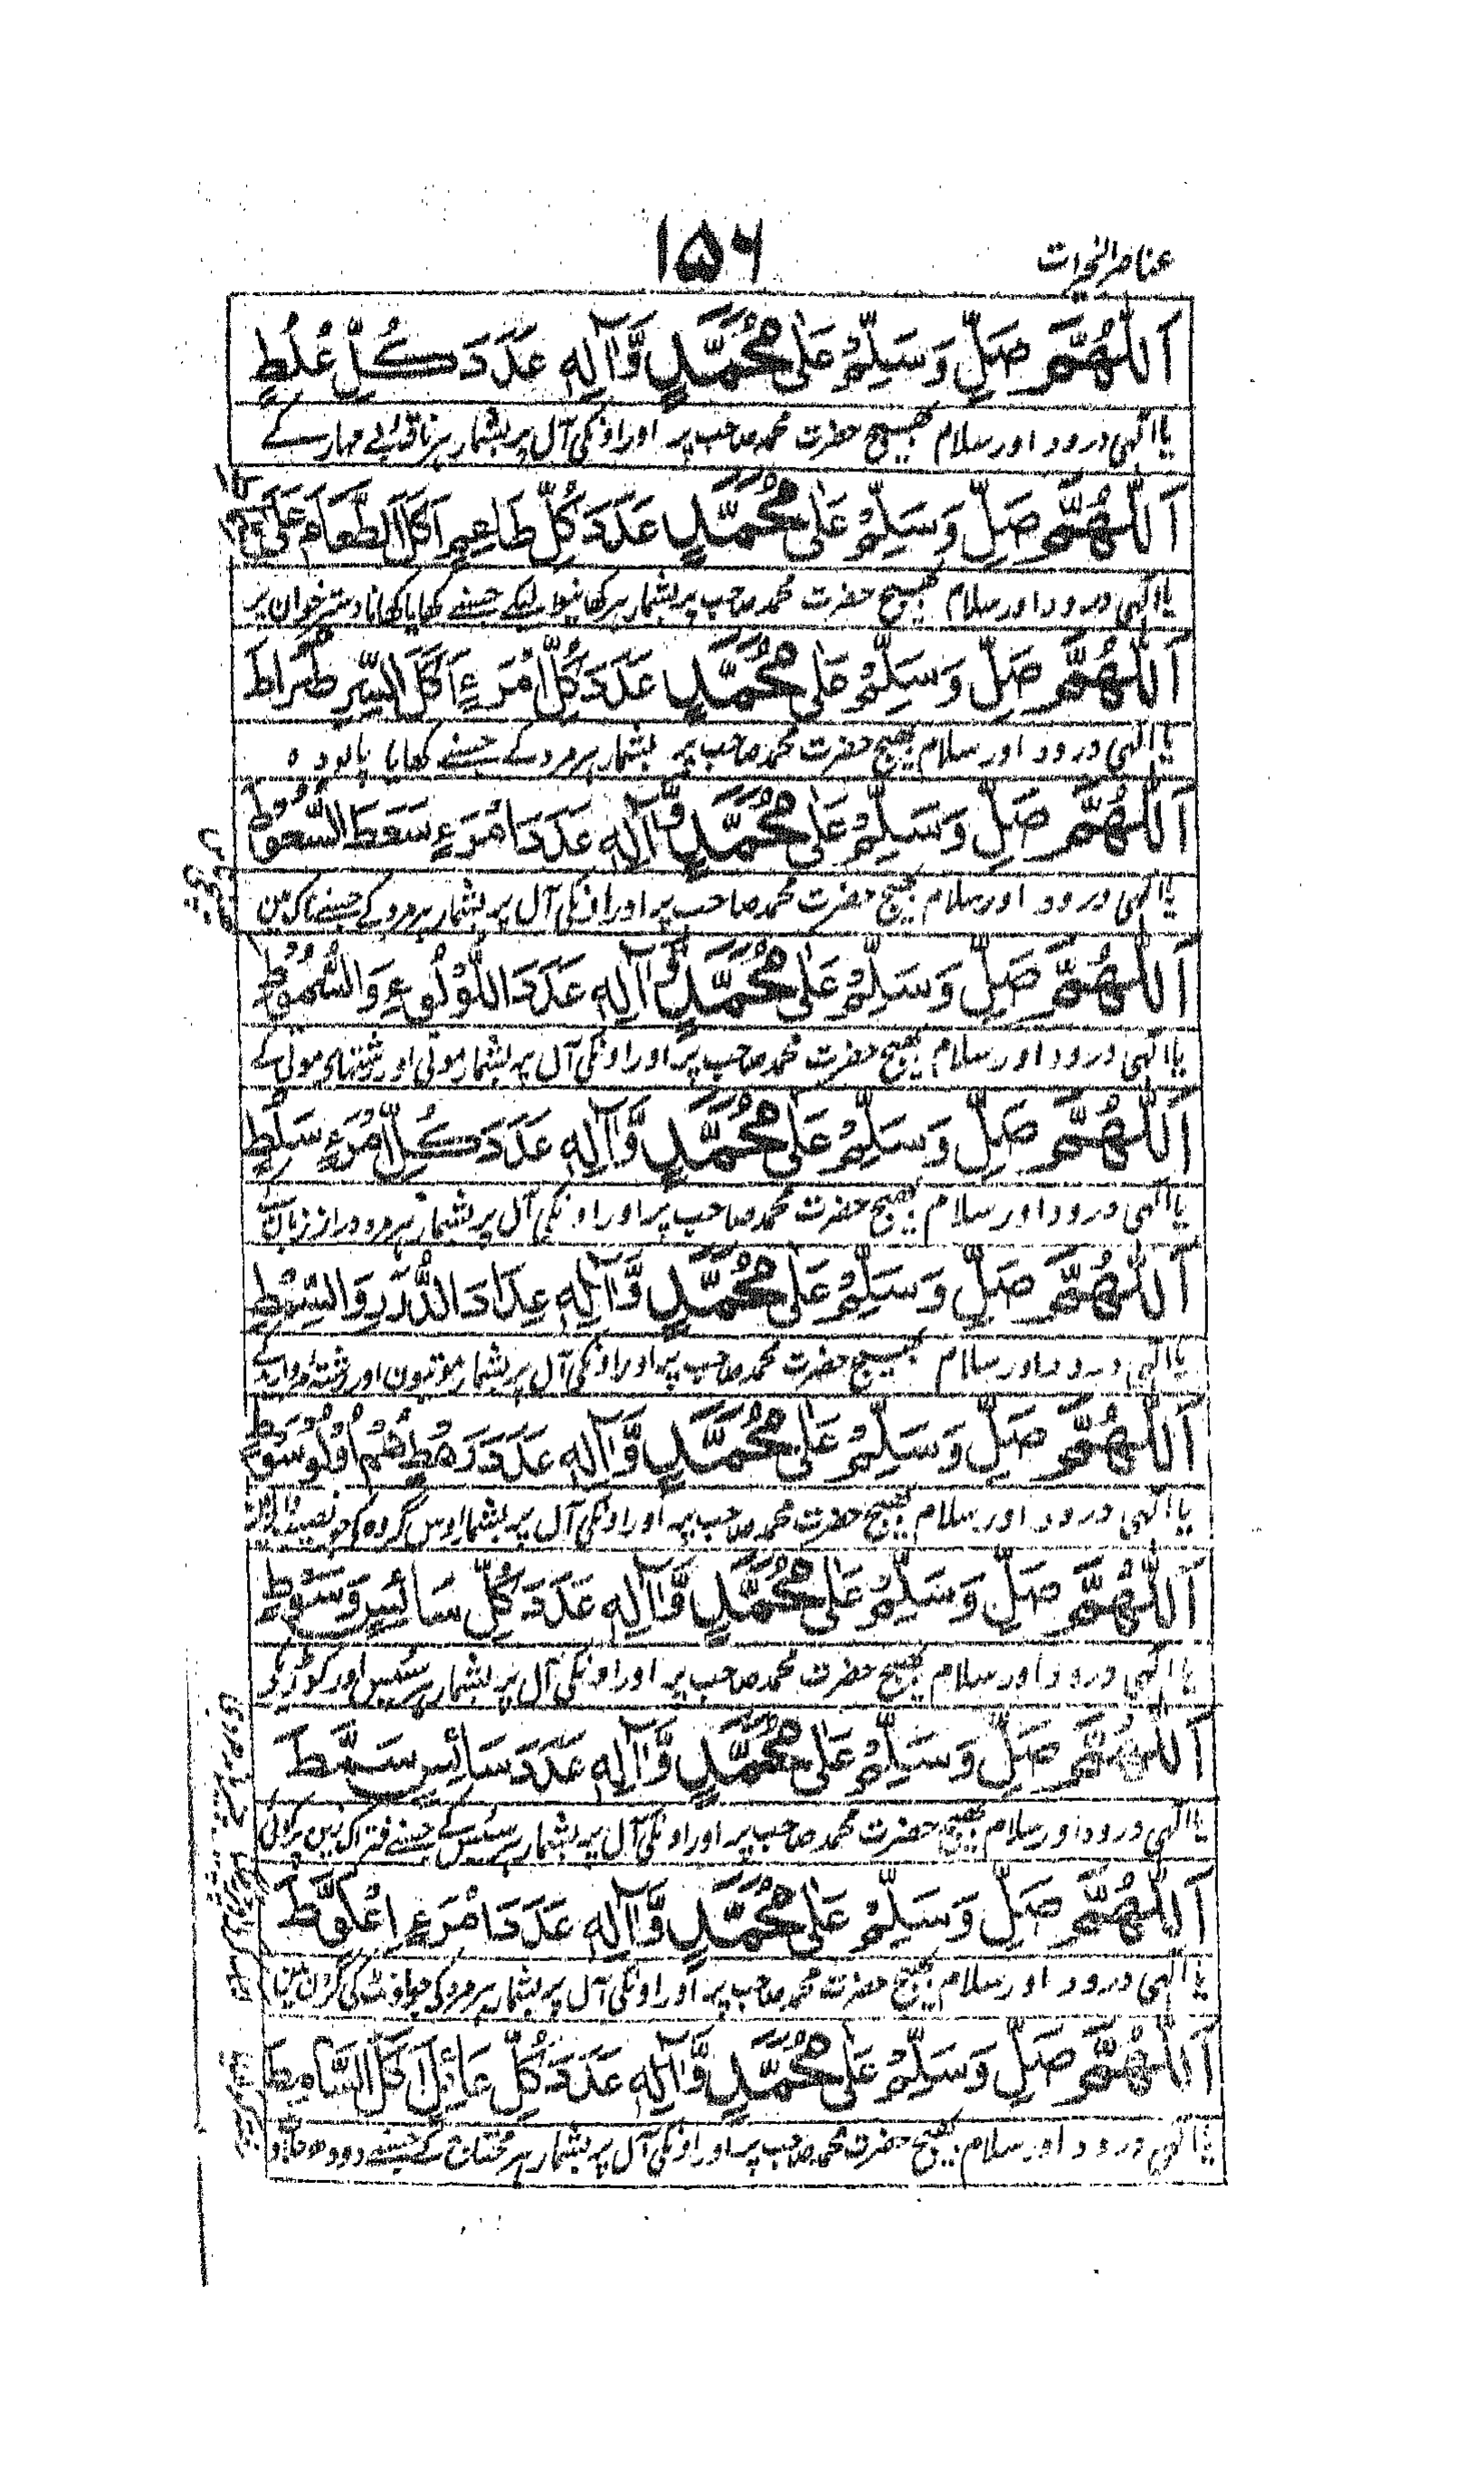 عناصر النجات
۱۵۶
اَللّٰهُمَّ صَلِّ وَسَلِّمْ عَلٰی مُحَمَّدٍ وَّاٰلِهٖ عَدَدَ كُلِّ عُلُطٍ
یا الٰہی درود اور سلام بھیج حضرت محمد صاحب پر اور اونکی آل پر بشمار ہر ناقہ بے مہار کے
اَللّٰهُمَّ صَلِّ وَسَلِّمْ عَلٰی مُحَمَّدٍ عَدَدَ كُلِّ طَاعِمٍ اَكَلَ الطَّعَامَ عَلَی
یا الٰہی درود اور سلام بھیج حضرت محمد صاحب پر بشمار ہر کھانیوالیکے جسنے کھایا کھانا دسترخوان پر
اَللّٰهُمَّ صَلِّ وَسَلِّمْ عَلٰی مُحَمَّدٍ عَدَدَ كُلِّ امْرَءٍ اَكَلَ السِّرِطْرَاطَ
یا الٰہی درود اور سلام بھیج حضرت محمد صاحب پر بشمار ہر مرد کے جسنے کھایا پالودہ
اَللّٰهُمَّ صَلِّ وَسَلِّمْ عَلٰی مُحَمَّدٍ وَّاٰلِهٖ عَدَدَ امْرَءٍ سَعَطَ السَّعُوْطَ
یا الٰہی درود اور سلام بھیج حضرت محمد صاحب پر اور اونکی آل پر بشمار ہر مرد کے جسنے ناک مین
اَللّٰهُمَّ صَلِّ وَسَلِّمْ عَلٰی مُحَمَّدٍ وَّاٰلِهٖ عَدَدَ اللُّؤْلُوءِ وَالسُّمُوْطِ
یا الٰہی درود اور سلام بھیج حضرت محمد صاحب پر اور اونکی آل پر بشمار موتی اور رشتہای موتی کے
اَللّٰهُمَّ صَلِّ وَسَلِّمْ عَلٰی مُحَمَّدٍ وَّاٰلِهٖ عَدَدَ كُلِّ امْرَءٍ سَلِطٍ
یا الٰہی درود اور سلام بھیج حضرت محمد صاحب پر اور اونکی آل پر بشمار ہر مرد دراز زبان کے
اَللّٰهُمَّ صَلِّ وَسَلِّمْ عَلٰی مُحَمَّدٍ وَّاٰلِهٖ عِدَادَ الدُّرَرِ وَالسِّمْطِ
یا الٰہی درود اور سلام بھیج حضرت محمد صاحب پر اور اونکی آل پر بشمار موتیون اور رشتہ مروارید کے
اَللّٰهُمَّ صَلِّ وَسَلِّمْ عَلٰی مُحَمَّدٍ وَّاٰلِهٖ عَدَدَ رَهْطٍ هُمْ اُولُوْ سَوْطٍ
یا الٰہی درود اور سلام بھیج حضرت محمد صاحب پر اور اونکی آل پر بشمار اوس گروہ کے جو
اَللّٰهُمَّ صَلِّ وَسَلِّمْ عَلٰی مُحَمَّدٍ وَّاٰلِهٖ عَدَدَ كُلِّ سَائِسٍ وَسَوْطٍ
یا الٰہی درود اور سلام بھیج حضرت محمد صاحب پر اور اونکی آل پر بشمار ہر سئیس اور کوڑے کے
اَللّٰهُمَّ صَلِّ وَسَلِّمْ عَلٰی مُحَمَّدٍ وَّاٰلِهٖ عَدَدَ سَائِسٍ سَمَّطَ
یا الٰہی درود اور سلام بھیج حضرت محمد صاحب پر اور اونکی آل پر بشمار ہر سئیس کے جسنے فتراک زین پر کوئی
اَللّٰهُمَّ صَلِّ وَسَلِّمْ عَلٰی مُحَمَّدٍ وَّاٰلِهٖ عَدَدَ امْرَءٍ اعْلَوَّطَ
یا الٰہی درود اور سلام بھیج حضرت محمد صاحب پر اور اونکی آل پر بشمار ہر مرد کی جو اونٹ کی گردن مین
اَللّٰهُمَّ صَلِّ وَسَلِّمْ عَلٰی مُحَمَّدٍ وَّاٰلِهٖ عَدَدَ كُلِّ عَائِلٍ اَكَلَ السَّامِطَ
یا الٰہی درود اور سلام بھیج حضرت محمد صاحب پر اور اونکی آل پر بشمار ہر محتاج کے جسنے دودھ